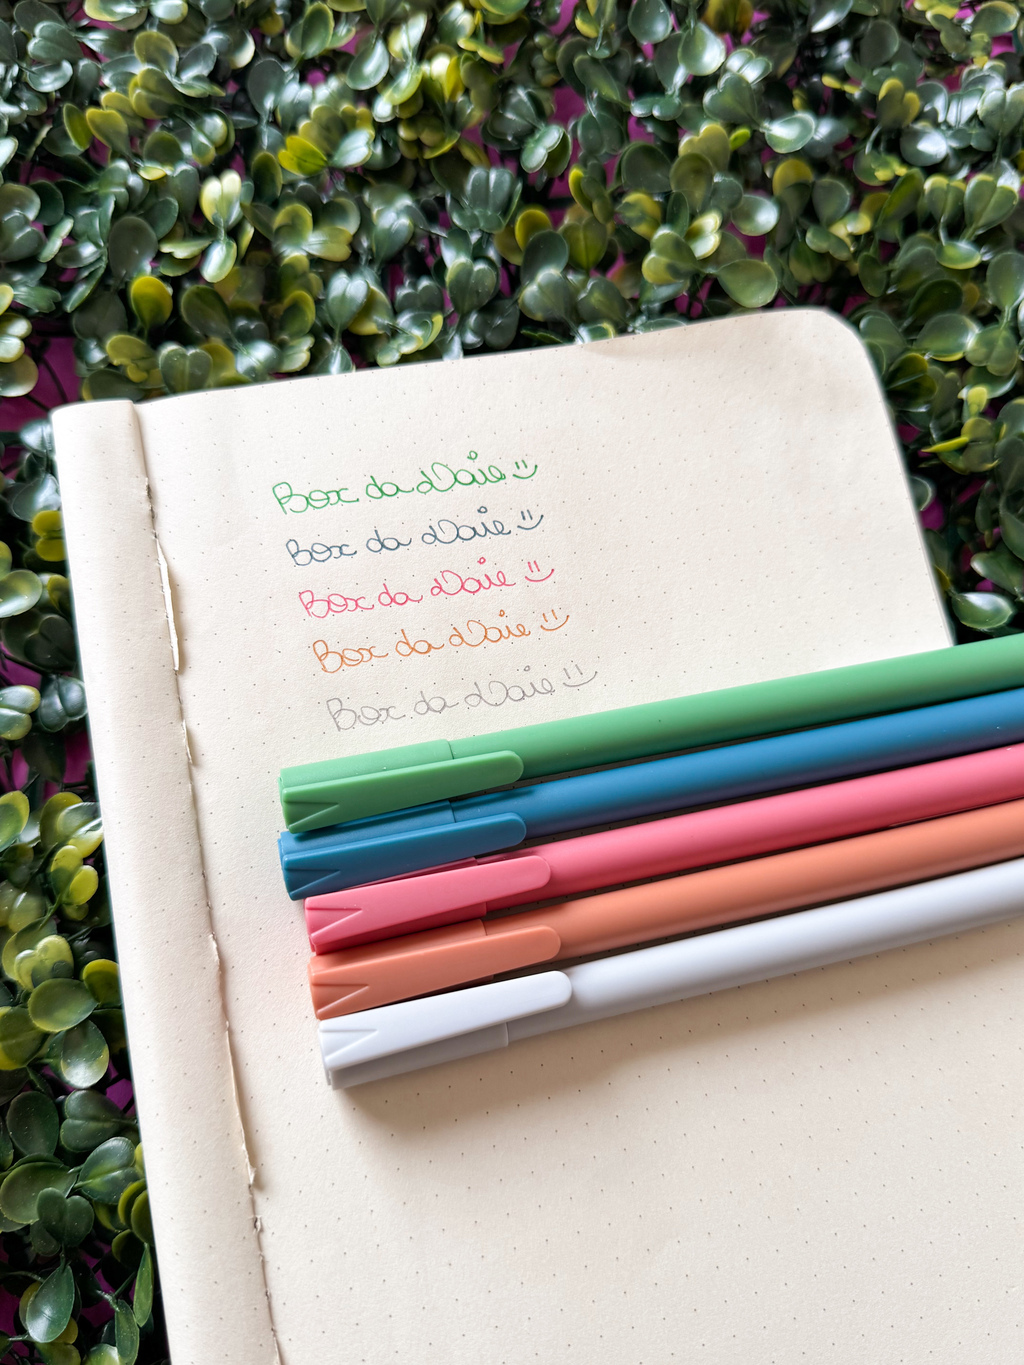 Box da Naie :)
Box da Naie :)
Box da Naie :)
Box da Naie :)
Box da Naie :)